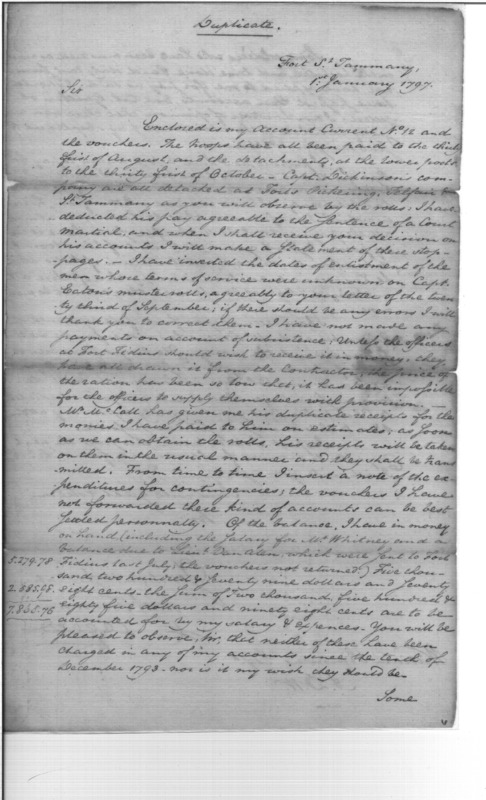 Duplicate.
Fort St. Tammany,
1st January 1797.
Sir
Enclosed is my Account Current No. 12 and
the vouchers. The troops have all been paid to the thirty
first of August, and the detachments, at the lower posts
to the thirty first of October – Capt. Dickinson's com-
pany are all detached at Forts Pickering,
St. Tammany as you will observe by the rolls. I have
deducted his pay agreeable to the Sentence of a Court
Martial, and when I shall receive your decision on
his accounts I will make a Statement of these stop-
pages. – I have inserted the dates of enlistment of the
men whose terms of service were unknown on Capt.
Eaton's muster rolls, agreeably to your letter of the twen
ty third of September; if there should be any errors I will
thank you to correct them – I have not made any
payments on account of subsistence; Unless the officers
at Fort Fidius should wish to receive it in money, they
have all drawn it from the Contractor; the price of
the ration has been so low that, it has been impossible
for the officers to supply themselves with provision –
Mr. McCall has given me his duplicate receipts for the
monies I have paid to him on estimates; as soon
as we can obtain the rolls, his receipts will be taken
on them in the usual manner and they shall be trans
mitted. From time to time I insert a note of the ex-
penditures for contingencies; the vouchers I have
not forwarded these kind of accounts can be best
settled personally. Of the balance, I have in money
on hand (including the Salary for Mr. Whitney and a
balance due to Lieut. Van Allen, which were sent to Fort
Fidius last July; the vouchers not returned) Five thou-
5.279.78
sand two hundred & seventy nine dollars and seventy
eight cents. the sum of Two thousand five hundred &
2.585.98
eighty five dollars and ninety eight cents are to be
7.865.76
accounted for by my salary & expences. You will be
pleased to observe, Sir, that neither of these have been
charged in any of my accounts since the tenth of
December 1793. nor is it my wish they should be.
Some